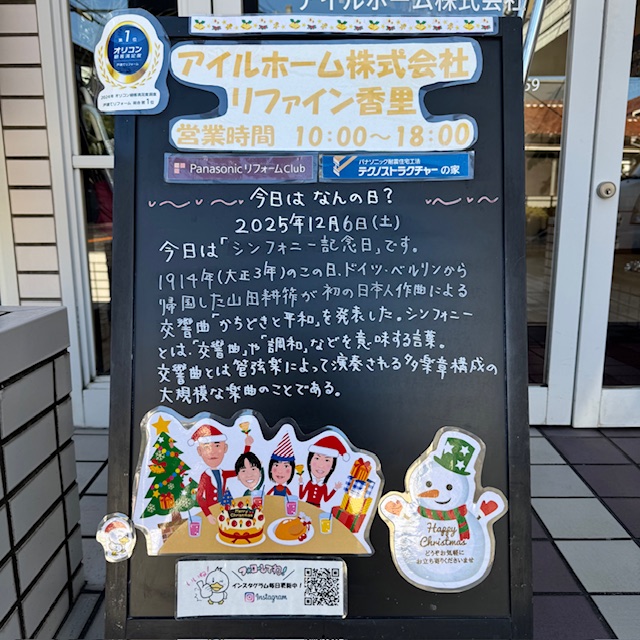 アイルホーム株式会社
第1位
オリコン
顧客満足度
アイルホーム株式会社
リファイン香里
営業時間 10:00〜18:00
Panasonic リフォームClub
パナソニック耐震住宅工法
テクノストラクチャーの家
今日は なんの日?
2025年12月6日(土)
今日は「シンフォニー記念日」です。
1914年(大正3年)のこの日、ドイツ・ベルリンから
帰国した山田耕筰が初の日本人作曲による
交響曲「かちどきと平和」を発表した。シンフォニー
とは、「交響曲」や「調和」などを意味する言葉。
交響曲とは管弦楽によって演奏される多楽章構成の
大規模な楽曲のことである。
Happy
Christmas
どうぞお気軽に
お立ち寄りくださいませ
インスタグラム毎日更新中!
Instagram